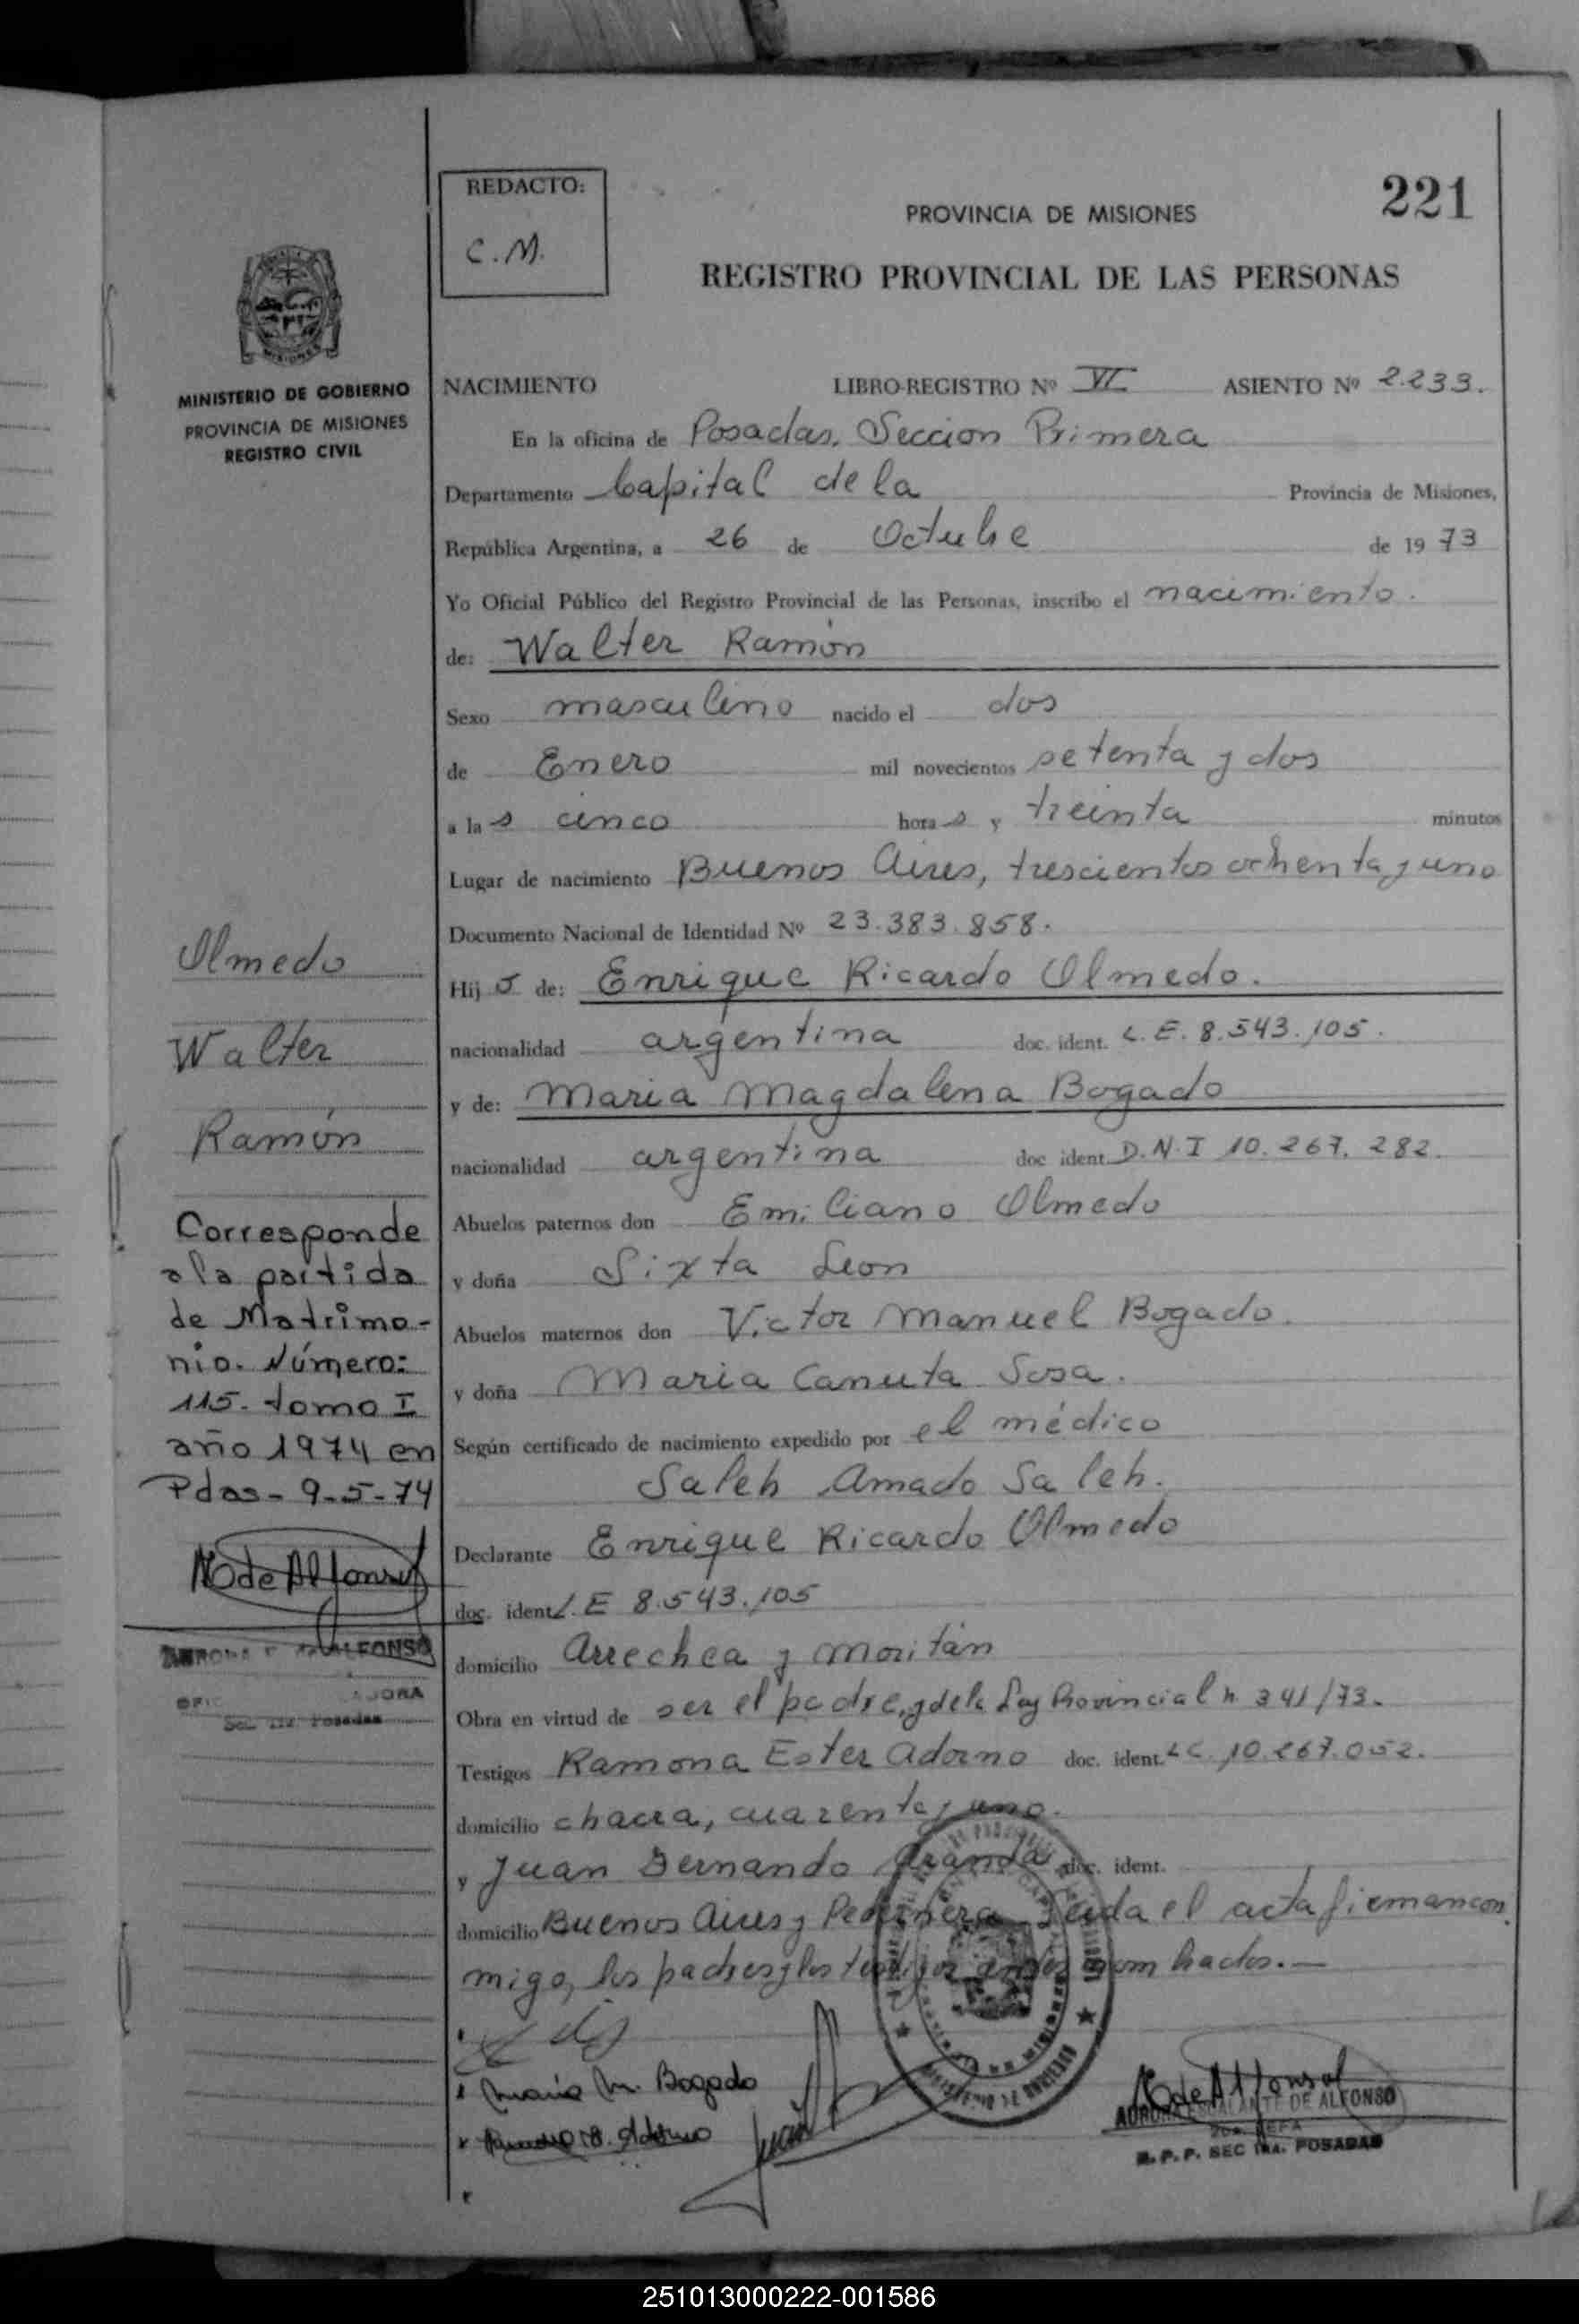 REDACTO:
C.M.
221
PROVINCIA DE MISIONES
REGISTRO PROVINCIAL DE LAS PERSONAS
MINISTERIO DE GOBIERNO
PROVINCIA DE MISIONES
REGISTRO CIVIL
NACIMIENTO LIBRO-REGISTRO Nº VI ASIENTO Nº 2.233.
En la oficina de Posadas, Seccion Primera
Departamento Capital de la Provincia de Misiones,
República Argentina, a 26 de Octubre de 1973
Yo Oficial Público del Registro Provincial de las Personas, inscribo el nacimiento.
de: Walter Ramón
Sexo masculino nacido el dos
de Enero mil novecientos setenta y dos
a las cinco horas y treinta minutos
Lugar de nacimiento Buenos Aires, trescientos ochenta y uno
Documento Nacional de Identidad Nº 23.383.858.
Hijo de: Enrique Ricardo Olmedo.
nacionalidad argentina doc. ident. L.E. 8.543.105.
y de: Maria Magdalena Bogado
nacionalidad argentina doc ident D.N.I 10.267.282.
Abuelos paternos don Emiliano Olmedo
y doña Sixta Leon
Abuelos maternos don Victor Manuel Bogado.
y doña Maria Canuta Sosa.
Según certificado de nacimiento expedido por el médico
Saleh Amado Saleh.
Declarante Enrique Ricardo Olmedo
doc. ident L.E 8.543.105
domicilio Arrechea y Moritán
Obra en virtud de ser el padre, y de la Ley Provincial n 341/73.
Testigos Ramona Ester Adorno doc. ident. LC. 10.267.052.
domicilio chacra, cuarenta y uno.
y Juan Bernando Aranda doc. ident.
domicilio Buenos Aires y Pedernera Leida el acta firman con
migo, los padres y los testigos antes nombrados.—
Olmedo
Walter
Ramón
Corresponde
a la partida
de Matrimo-
nio. Número:
115. tomo I
año 1974 en
Pdas- 9-5-74
NO de Alfonso
ALFONSO
Sec. 1ra Posadas
Maria M. Bogado
Juan
NO de Alfonso
AURORA ESCALANTE DE ALFONSO
JEFA
R.P.P. SEC 1RA. POSADAS
251013000222-001586